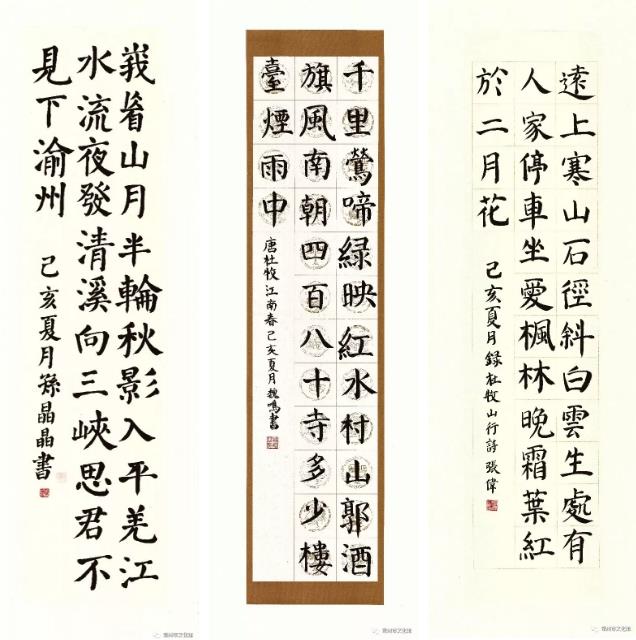 峩眉山月半輪秋影入平羌江
水流夜發清溪向三峽思君不
見下渝州
己亥夏月孫晶晶書
千里鶯啼緑映紅水村山郭酒
旗風南朝四百八十寺多少樓
臺煙雨中
唐杜牧江南春己亥夏月魏鳴書
遠上寒山石徑斜白雲生處有
人家停車坐愛楓林晚霜葉紅
於二月花
己亥夏月録杜牧山行詩張偉